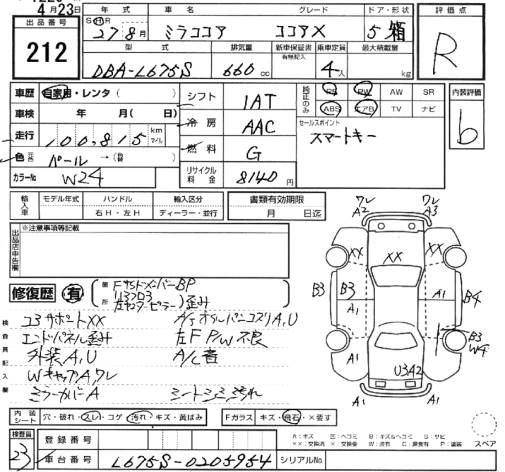 4月23日
出品番号
212
年式
車名
グレード
ドア・形状
評価点
27年8月
ミラココア
ココアX
5 箱
R
型式
排気量
新車保証書
有無記入
乗車定員
最大積載量
DBA-L675S
660cc
4人
kg
車歴
自家用・レンタ（
シフト
1AT
純正のみ
PS PW AW SR
ABS エアB TV ナビ
内装評価
b
車検
年 月（ 日）
冷房
AAC
セールスポイント
スマートキー
走行
100,815
km
マイル
燃料
G
色
パール→
カラーNo
W24
リサイクル料金
8140円
輸入車
モデル年式
ハンドル
輸入区分
書類有効期限
右H・左H
ディーラー・並行
月 日迄
出品店申告欄
※注意事項等記載
修復歴
有
箇所
検査員記入欄
コアサポートXX
エンドパネル歪み
左F P/W不良
外装A,U
A/C音
WキャップA,ワレ
ミラーカバーA
シートシミ汚れ
ワレ
A2
ワレ
A3
XX
XX
XX
B3
B3
A1
B4
A1
A1
B3
W4
U3A2
A1
A1
内装シート
穴・破れ・スレ・コゲ
汚れ・キズ・黄ばみ
Fガラス
キズ・飛石・×要す
A：キズ
U：ヘコミ
B：キズ&ヘコミ
S：サビ
スペア
検査員
23
登録番号
車台番号
L675S-0205954
シリアルNo